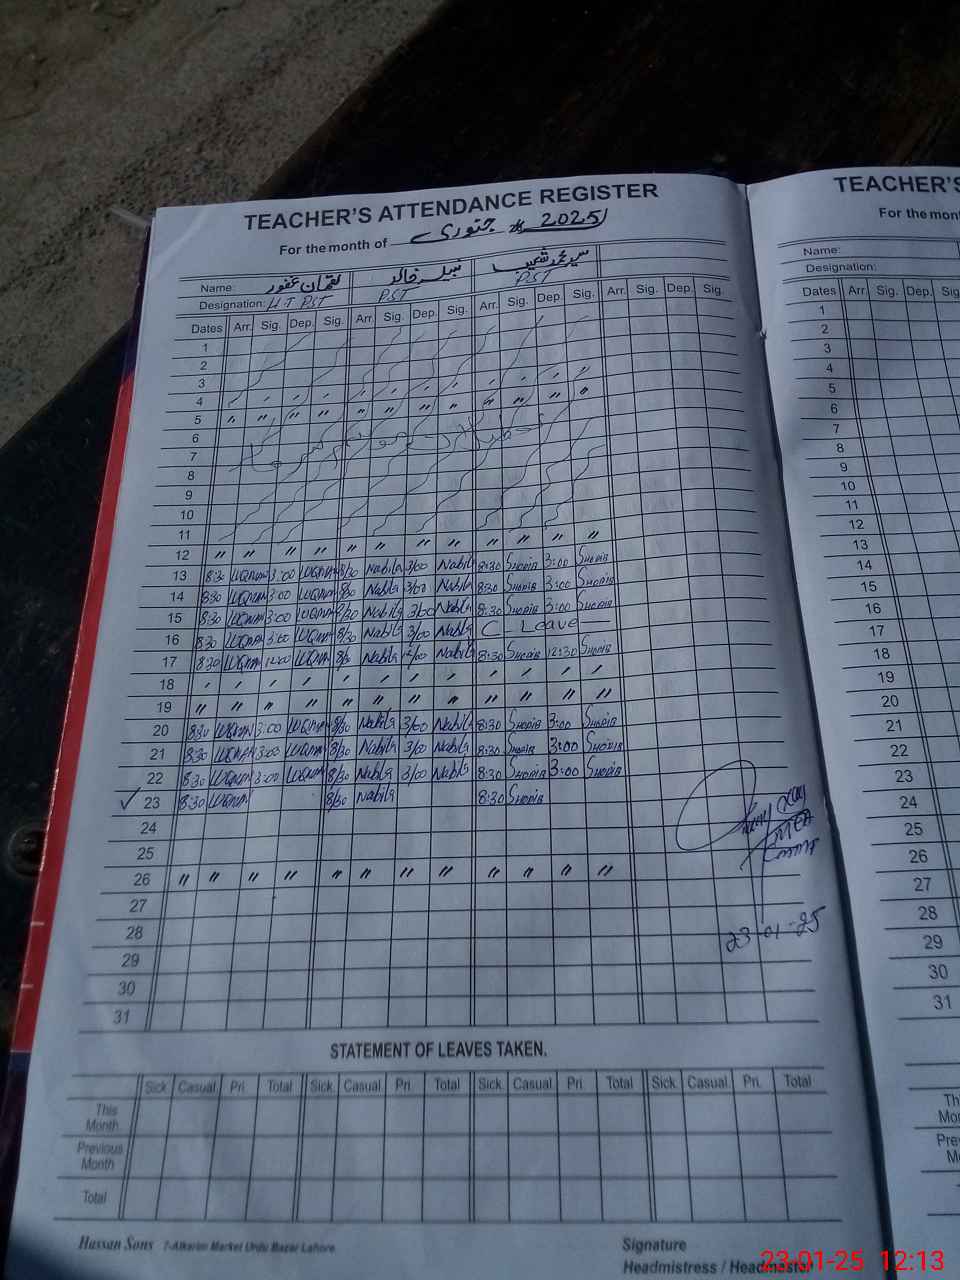 TEACHER'S ATTENDANCE REGISTER
For the month of جنوری 2025ء
Name: لقمان غفور نبیلہ خالد سید محمد شعیب
Designation: H.T PST PST PST
Dates Arr. Sig. Dep. Sig. Arr. Sig. Dep. Sig. Arr. Sig. Dep. Sig. Arr. Sig. Dep. Sig.
1
2
3
4
5 〃 〃 〃 〃 〃 〃 〃 〃 〃 〃 〃 〃
6
7
8
9
10
11
12 〃 〃 〃 〃 〃 〃 〃 〃 〃 〃 〃 〃
13 8:30 LUQMAN 3:00 LUQMAN 8/30 Nabila 3/00 Nabila 8:30 SHOAIB 3:00 SHOAIB
14 8:30 LUQMAN 3:00 LUQMAN 8/30 Nabila 3/00 Nabila 8:30 SHOAIB 3:00 SHOAIB
15 8:30 LUQMAN 3:00 LUQMAN 8/30 Nabila 3/00 Nabila 8:30 SHOAIB 3:00 SHOAIB
16 8:30 LUQMAN 3:00 LUQMAN 8/30 Nabila 3/00 Nabila C - Leave
17 8:30 LUQMAN 12:00 LUQMAN 8/30 Nabila 12/00 Nabila 8:30 SHOAIB 12:30 SHOAIB
18
19 〃 〃 〃 〃 〃 〃 〃 〃 〃 〃 〃 〃
20 8:30 LUQMAN 3:00 LUQMAN 8/30 Nabila 3/00 Nabila 8:30 SHOAIB 3:00 SHOAIB
21 8:30 LUQMAN 3:00 LUQMAN 8/30 Nabila 3/00 Nabila 8:30 SHOAIB 3:00 SHOAIB
22 8:30 LUQMAN 3:00 LUQMAN 8/30 Nabila 3/00 Nabila 8:30 SHOAIB 3:00 SHOAIB
✓ 23 8:30 LUQMAN 8/30 Nabila 8:30 SHOAIB
24
25
26 〃 〃 〃 〃 〃 〃 〃 〃 〃 〃 〃 〃
27
28
29
30
31
MEA
23-01-25
STATEMENT OF LEAVES TAKEN.
Sick Casual Pri. Total Sick. Casual. Pri. Total Sick. Casual Pri. Total Sick. Casual. Pri. Total
This Month.
Previous Month
Total
Hassan Sons 7-Alkarim Market Urdu Bazar Lahore.
Signature
Headmistress / Headmaster
TEACHER'S
For the mont
Name:
Designation:
Dates Arr. Sig. Dep. Sig
1
2
3
4
5
6
7
8
9
10
11
12
13
14
15
16
17
18
19
20
21
22
23
24
25
26
27
28
29
30
31
Th
Mo
Pre
M
23-01-25 12:13